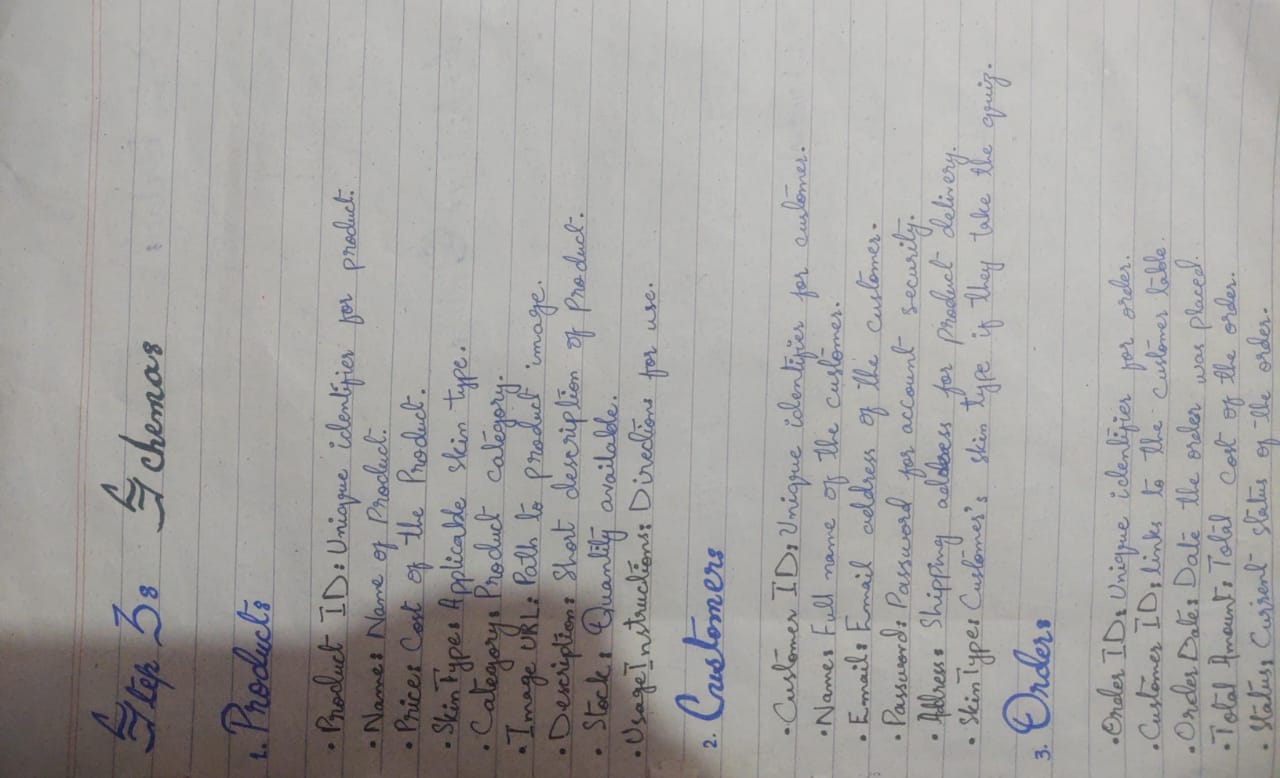 Step 3: Schemas
1. Product:
• Product ID: Unique identifier for product.
• Name: Name of Product.
• Price: Cost of the Product.
• SkinType: Applicable skin type.
• Category: Product category.
• Image URL: Path to product image.
• Description: Short description of Product.
• Stock: Quantity available.
• Usage Instructions: Directions for use.
2. Customers
• Customer ID: Unique identifier for customer.
• Name: Full name of the customer.
• Email: Email address of the customer.
• Password: Password for account security.
• Address: Shipping address for Product delivery.
• SkinType: Customer's skin type if they take the quiz.
3. Orders
• Order ID: Unique identifier for order.
• Customer ID: links to the customer table.
• Order Date: Date the order was placed.
• Total Amount: Total cost of the order.
• Status: Current status of the order.